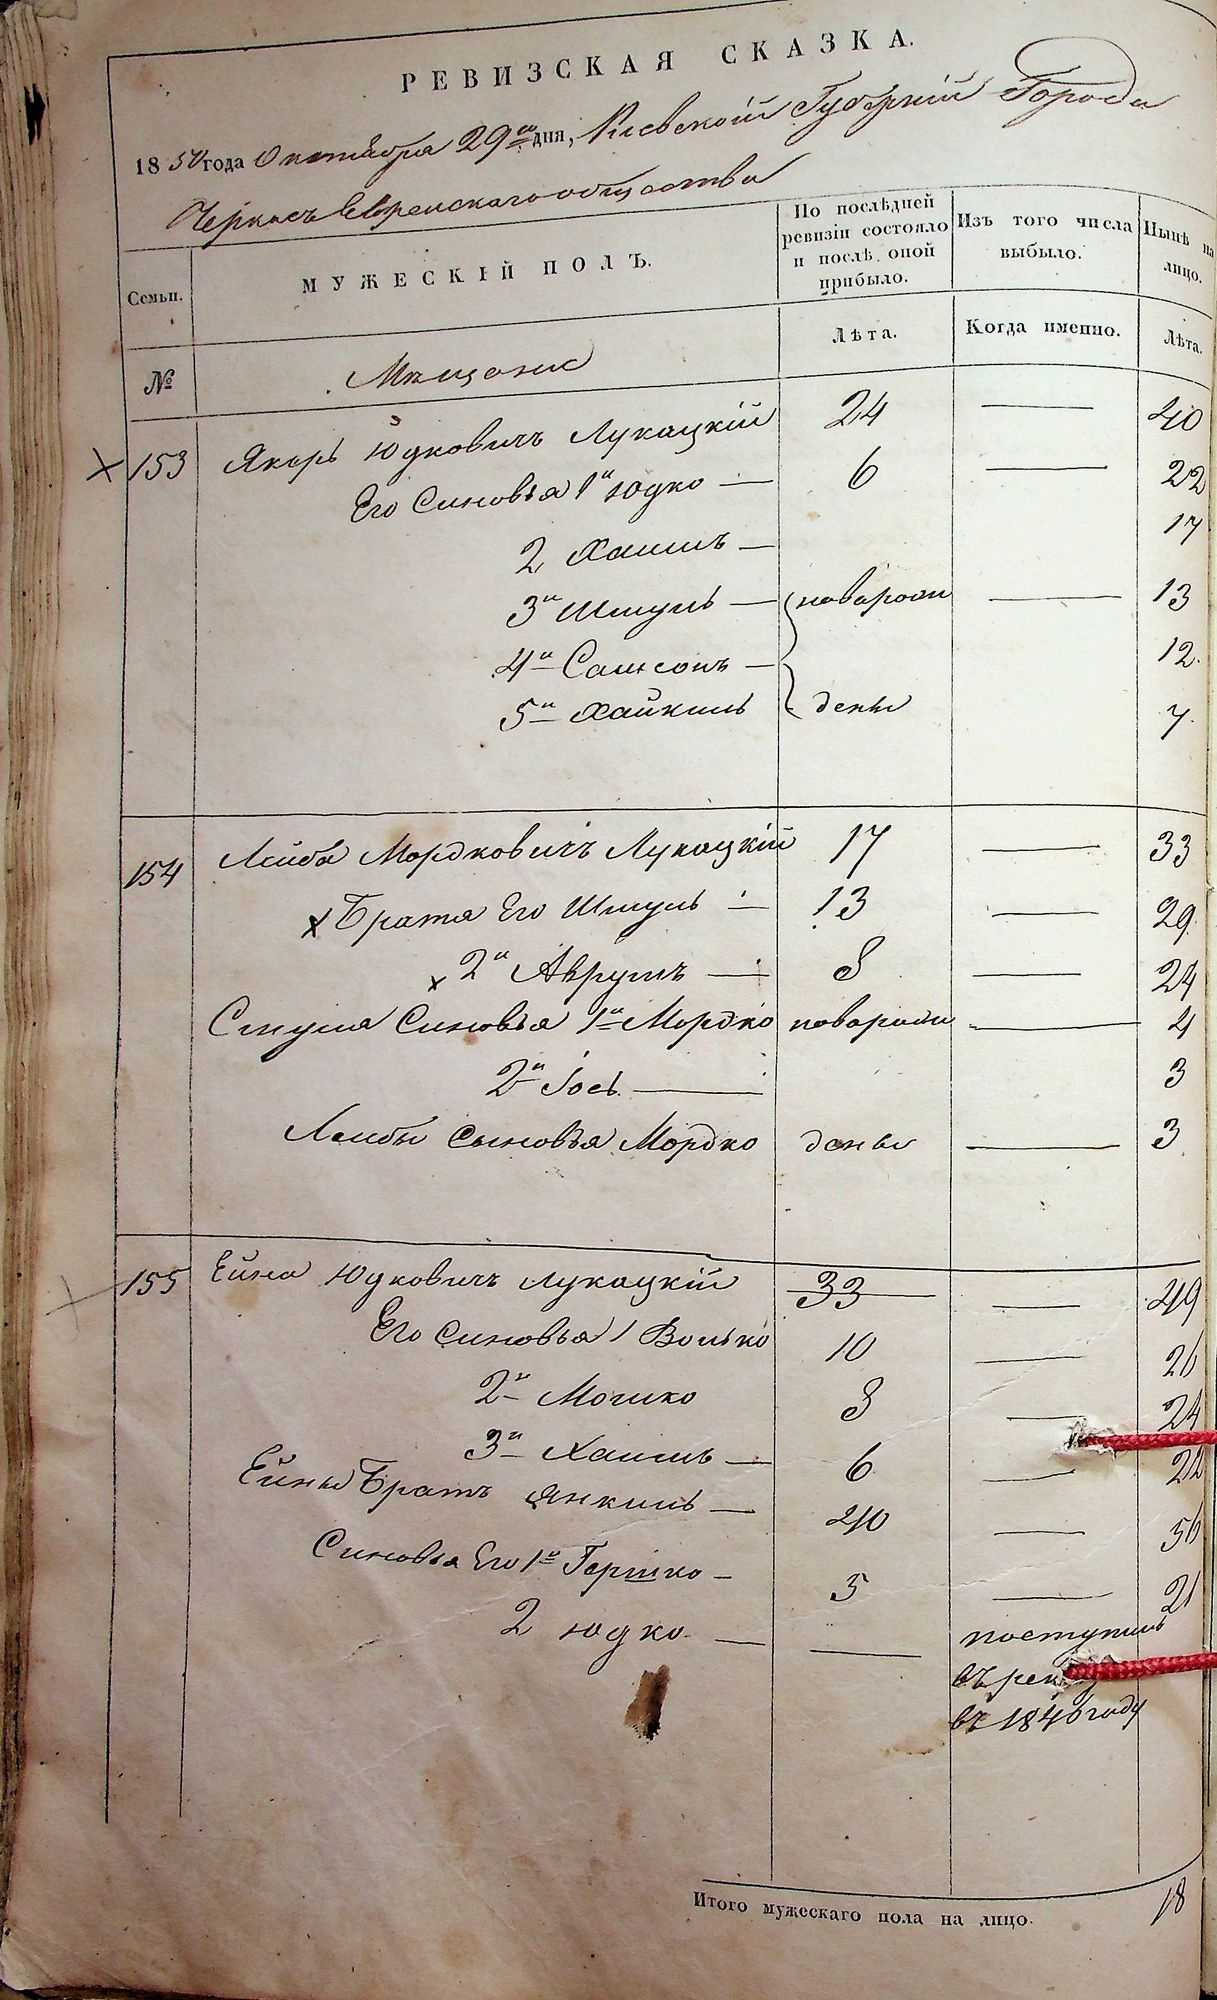 РЕВИЗСКАЯ СКАЗКА.
1850 года Октября 29го дня, Киевской Губернии Города
Черкасъ Еврейскаго общества
Семьи.
МУЖЕСКІЙ ПОЛЪ.
По послѣдней ревизіи состояло и послѣ оной прибыло.
Изъ того числа выбыло.
Нынѣ на лицо.
№
Мещане
Лѣта.
Когда именно.
Лѣта.
153 Юдковичъ Лукацкій 24 — 40
Его Синовья 1й Юдко — 6 — 22
2 Хаимъ — 17
3й Шмуль — новорож — 13
4й Самсонъ — 12.
5й Хайкиль дены 7
154 Лейба Мордковичъ Лукацкій 17 — 33
Братя Его Шмуль — 13 — 29
2й Аврумъ — 8 — 24
Синовья 1й Мордко новорож — 4
2й Іось — 3
Лейбы Сыновья Мордко дены — 3
155 Ейна Юдковичъ Лукацкій 33 — 49
Его Синовья 1 Волько 10 — 26
2й Мошко 8 — 24
3й Хаимъ — 6 — 22
Ейны Братъ Янкиль — 40 — 56
Синовья Его 1й Гершко — 5 — 21
2 Юдко — — поступилъ
въ рек
въ 1846 году
Итого мужескаго пола на лицо. 18